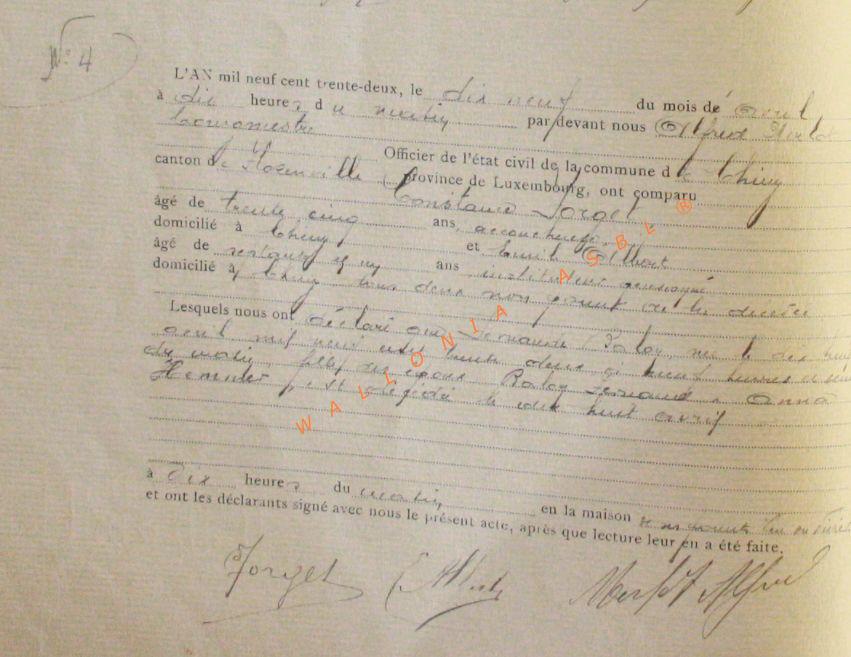 N° 4
L'AN mil neuf cent trente-deux, le dix neuf du mois de avril
à dix heures du matin par devant nous Alfred
bourgmestre Officier de l'état civil de la commune de Chiny
canton de Florenville province de Luxembourg, ont comparu
Constance Forget
âgé de trente cinq ans, accoucheuse
domicilié à Chiny et Emile Albert
âgé de ans instituteur pensionné
domicilié à Chiny tous deux non parent de la décédée
Lesquels nous ont déclaré que Fernande née le dix huit
avril mil neuf cent trente deux à neuf heures
du matin fille des époux Fernand & Anna
est décédée le dix huit avril
à dix heures du matin en la maison de ses parents
et ont les déclarants signé avec nous le présent acte, après que lecture leur en a été faite.
Forget Albert Alfred
WALLONIA ASBL ®